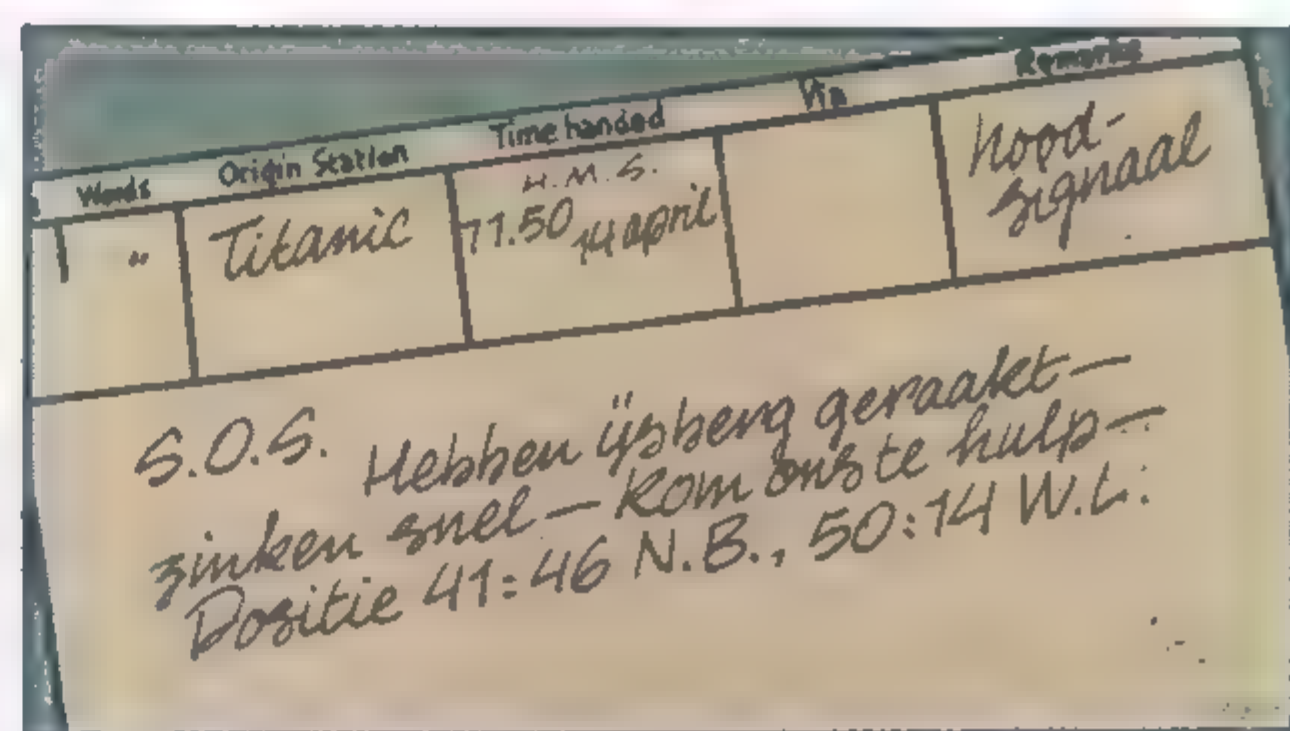 Words Origin Station Time handed Via Remarks
" Titanic H.M.S. Nood-
11.50 14 april signaal
S.O.S. Hebben ijsberg geraakt—
zinken snel — Kom ons te hulp—
Positie 41:46 N.B., 50:14 W.L.